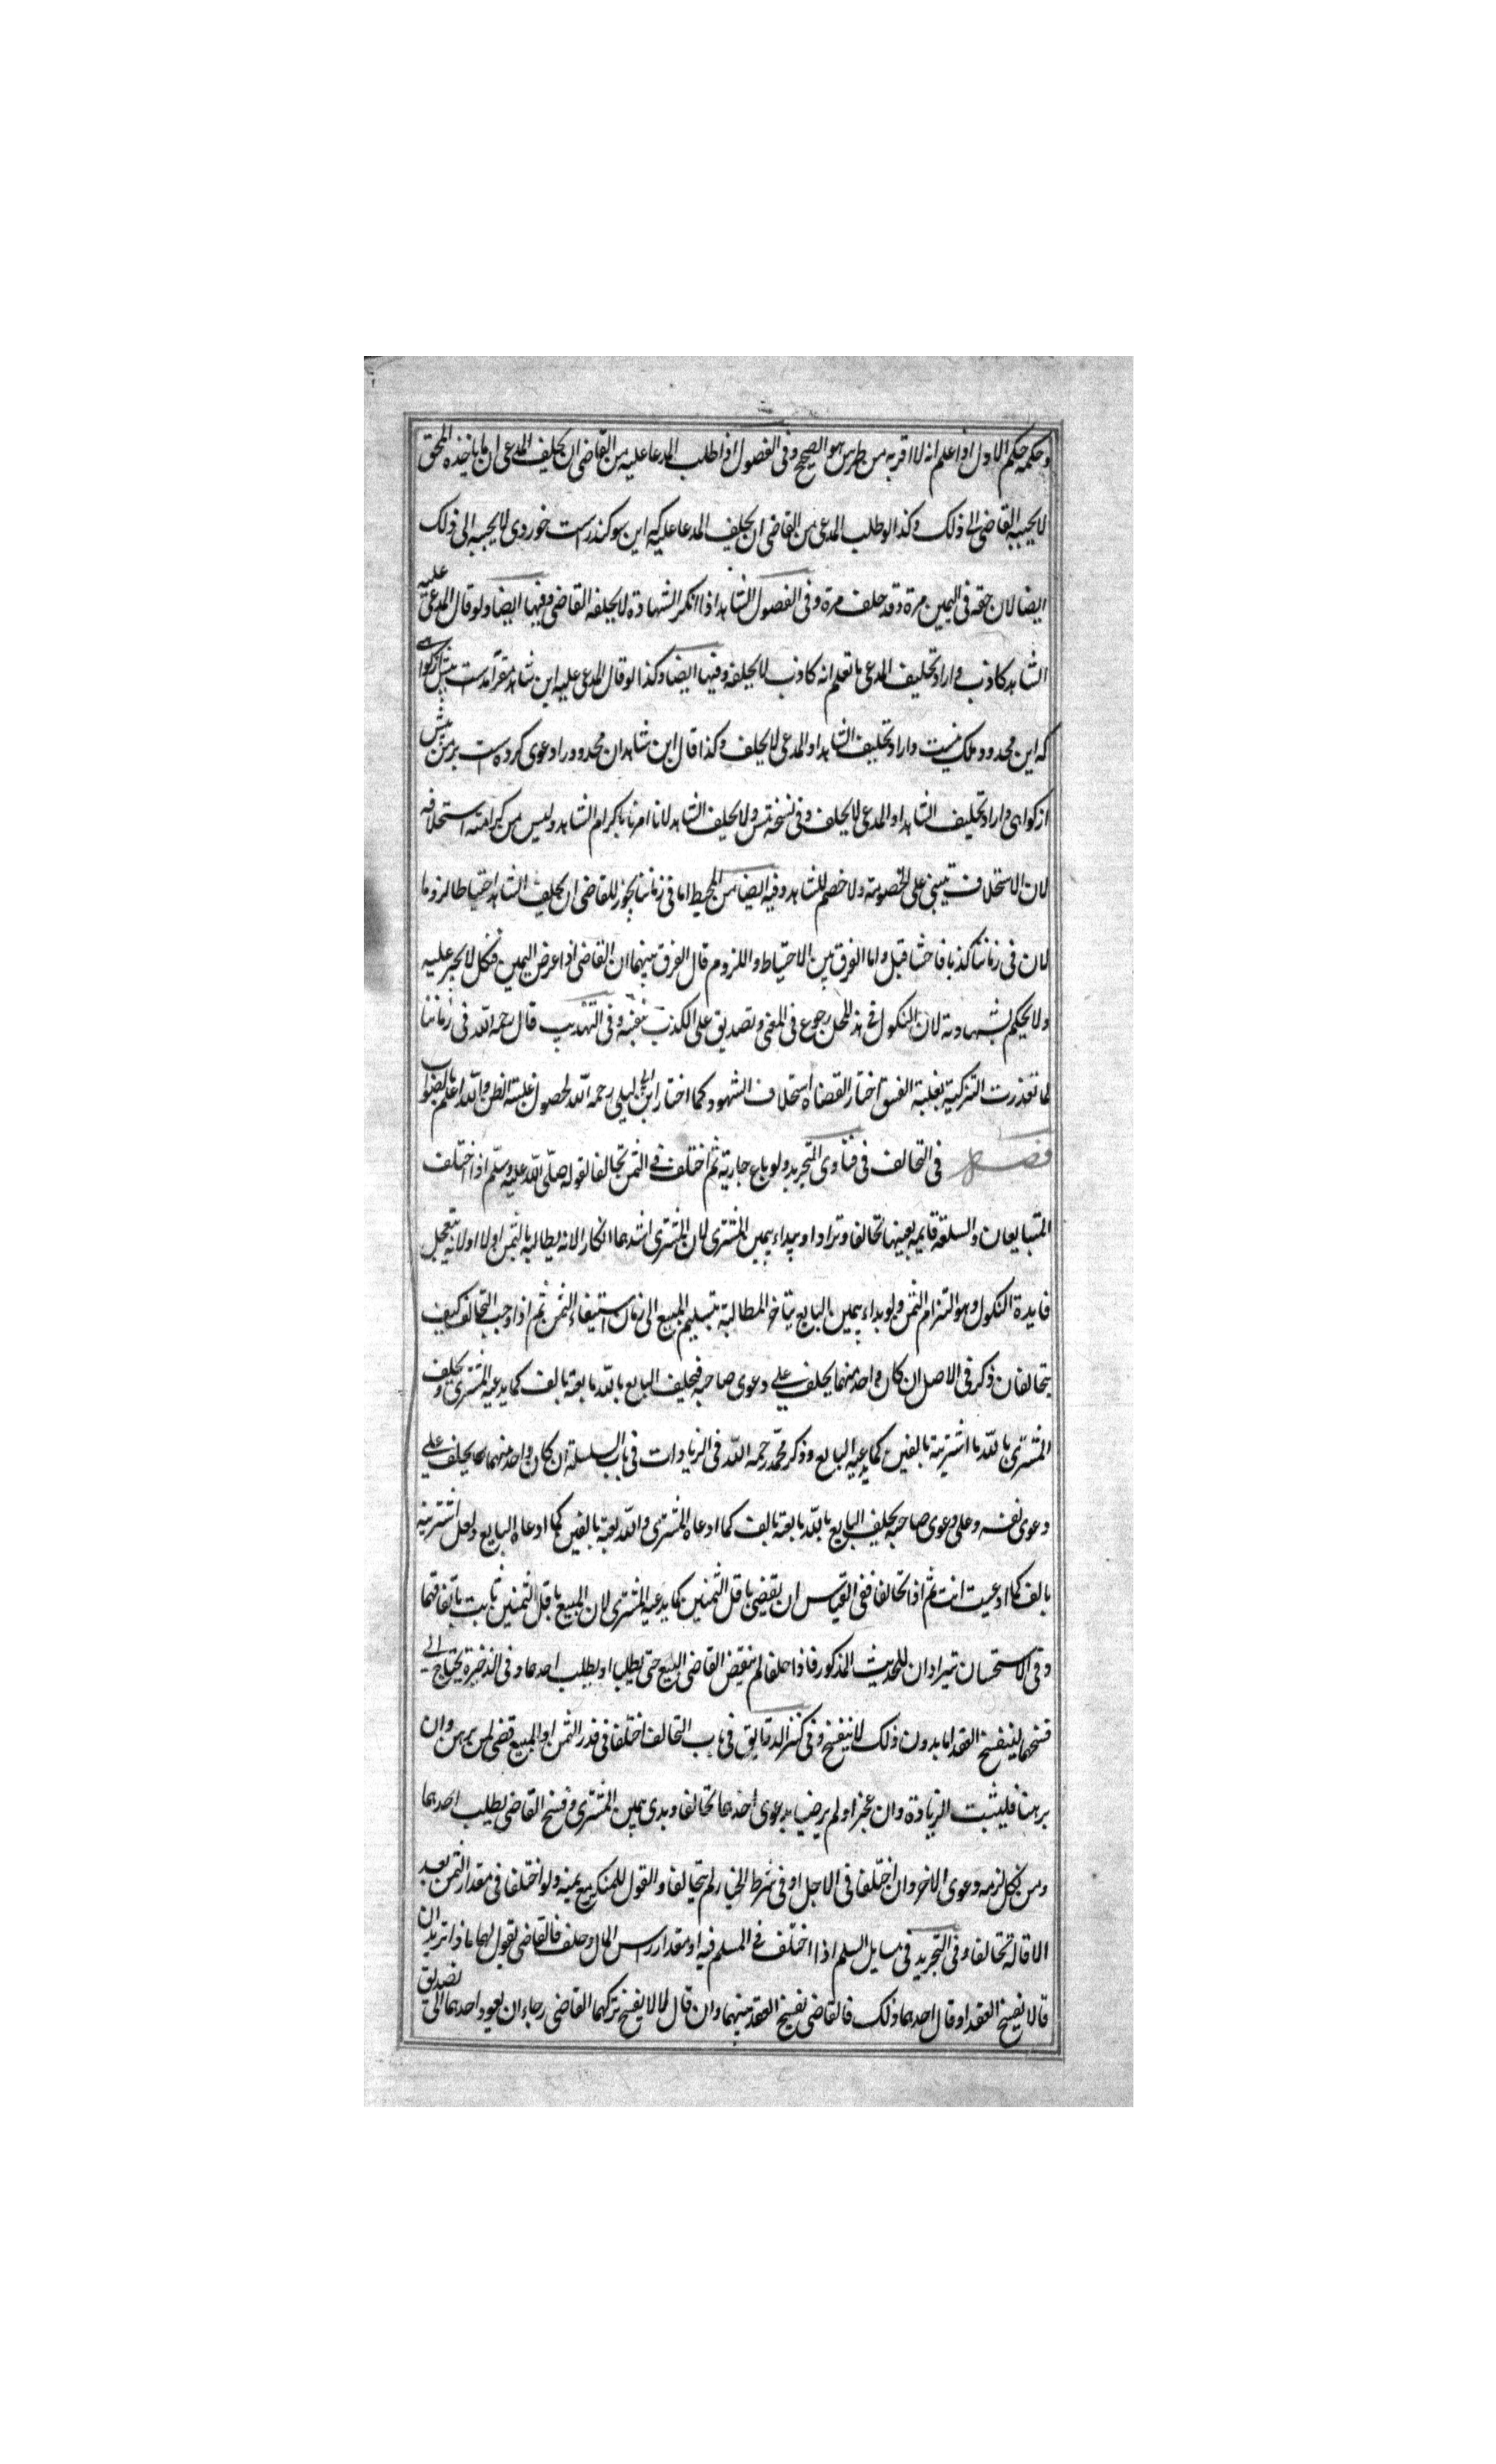 وحكمه حكم الاول اذا علم انه لا اقربه من طرس هو الصحيح وفى الفصول اذا طلب المدعا عليه من القاضى ان يحلف المدعى ان ما ياخذه الحق
لا يجيبه القاضى الى ذلك وكذا لو طلب المدعى من القاضى ان يحلف المدعا عليه كه اين سوكند راست خوردى لا يجيبه الى ذلك
ايضا لان حقه فى اليمين مرة وقد حلف مرة وفى الفصول الشاهد اذا انكر الشهادة لا يحلفه القاضى وفيها ايضا ولو قال المدعى عليه
الشاهد كاذب واراد تحليف المدعى ما تعلم انه كاذب لا يحلفه وفيها ايضا وكذا لو قال المدعى عليه اين شاهد مقر آمدست پيش از كواهى
كه اين محدود ملك نيست واراد تحليف الشاهد او المدعى لا يحلف وكذا قال اين شاهدان محدود را دعوى كرده ست بر من پيش
از كواهى واراد تحليف الشاهد او المدعى لا يحلف وفى نسخة ولا يحلف الشاهد لانا امرنا باكرام الشاهد وليس من كرامته استحلافه
لان الاستحلاف يبتنى على الخصومة ولا خصم للشاهد وفيه ايضا من المحيط اما فى زماننا يجوز للقاضى ان يحلف الشاهد احتياطا لا لزوما
لان فى زماننا كذبا فاحشا قيل واما الفرق بين الاحتياط واللزوم قال الفرق بينهما ان القاضى اذا عرض اليمين فنكل لا يجبر عليه
ولا يحكم بشهادته لان النكول فى هذا المحل رجوع فى المعنى وتصديق على الكذب بنفسه وفى التهذيب قال رحمه الله فى زماننا
لما تعذرت التزكية بغلبة الفسق اختار القضاة استحلاف الشهود كما اختار ابن ابى ليلى رحمه الله لحصول غلبة الظن والله اعلم بالصواب
فصل فى التحالف فى فتاوى التجريد ولو باع جارية ثم اختلف فى الثمن تحالفا لقوله صلى الله عليه وسلم اذا اختلف
المتبايعان والسلعة قايمة بعينها تحالفا وترادا ويبداء بيمين المشترى لان المشترى اشدهما انكارا لانه يطالبه بالثمن اولا او لانه يتعجل
فايدة النكول وهو التزام الثمن ولو بداء بيمين البايع يتاخر المطالبة بتسليم المبيع الى زمان استيفاء الثمن ثم اذا وجب التحالف كيف
يتحالفان ذكر فى الاصل ان كان واحد منهما يحلف على دعوى صاحبه فيحلف البايع بالله ما بعته بالف كما يدعيه المشترى ويحلف
المشترى بالله ما اشتريته بالفين كما يدعيه البايع وذكر محمد رحمه الله فى الزيادات فى باب السلسلة ان كان واحد منهما يحلف على
دعوى نفسه وعلى دعوى صاحبه يحلف البايع بالله ما بعته بالف كما ادعاه المشترى والله بعته بالفين كما ادعاه البايع ولعل اشتريته
بالف كما ادعيت انت ثم اذا تحالفا ففى القياس ان يقضى باقل الثمنين كما يدعيه المشترى لان المبيع باقل الثمنين ثابت باتفاقهما
وفى الاستحسان يترادان للحديث المذكور فاذا حلفا لم ينقض القاضى البيع حتى يطلبا او يطلب احدهما وفى الذخيرة يحتاج الى
فسخهما لينفسخ العقد اما بدون ذلك لا ينفسخ وفى كنز الدقايق فى باب التحالف اختلفا فى قدر الثمن او المبيع قضى لمن برهن وان
برهنا فلمثبت الزيادة وان عجزا ولم يرضيا بدعوى احدهما تحالفا وبدى بيمين المشترى وفسخ القاضى بطلب احدهما
ومن نكل لزمه دعوى الاخر وان اختلفا فى الاجل او فى شرط الخيار لم يتحالفا والقول للمنكر مع يمينه ولو اختلفا فى مقدار الثمن بعد
الاقالة تحالفا وفى التجريد فى مسايل السلم اذا اختلف فى المسلم فيه او مقدار راس المال وحلف فالقاضى يقول لهما ماذا تريدان
قالا نفسخ العقد او قال احدهما ذلك فالقاضى يفسخ العقد بينهما وان قالا لا يفسخ تركهما القاضى رجاء ان يعود احدهما الى تصديق